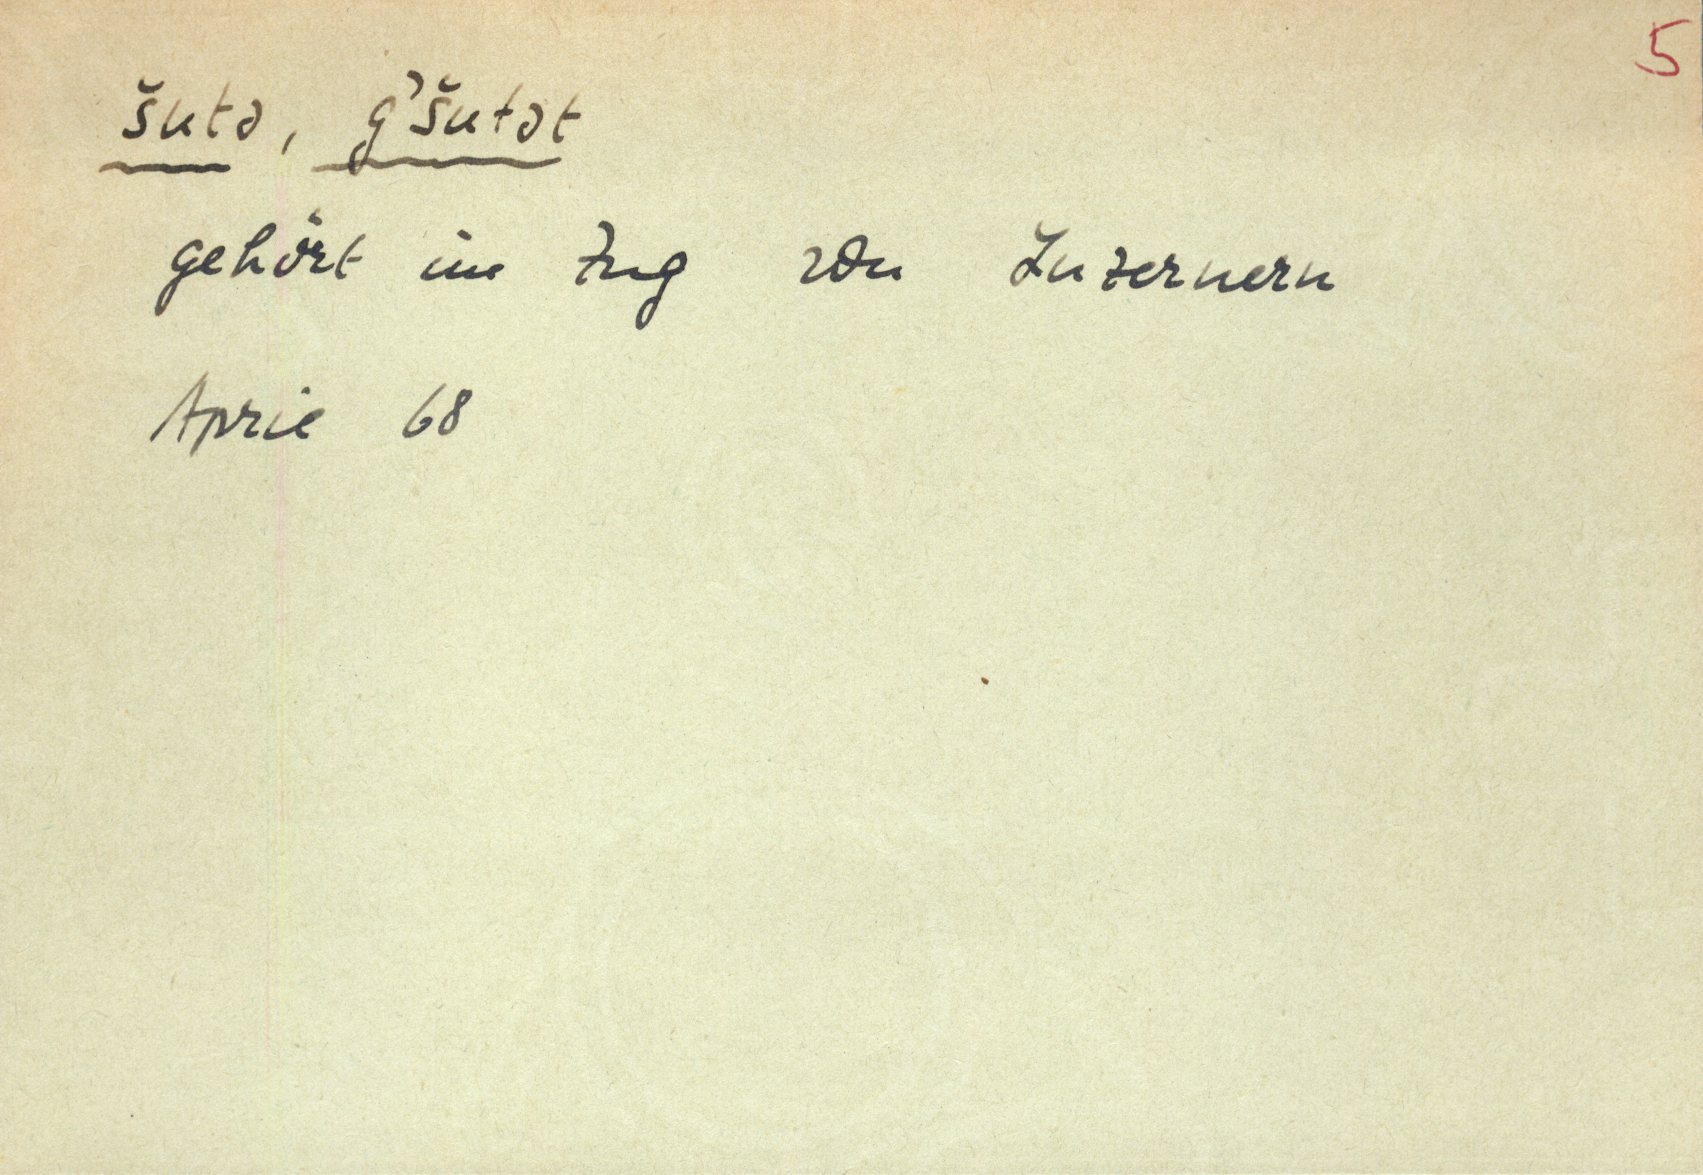 5
šutə, g'šutət
gehört im Zug von Luzernern
April 68